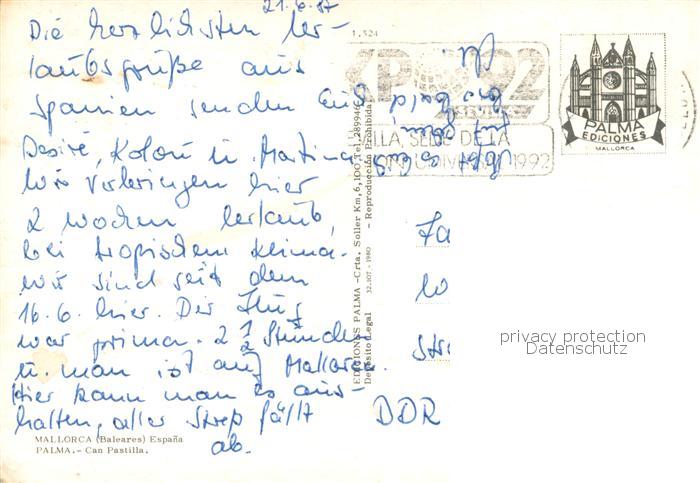 21.6.87
Die herzlichsten Ur-
laubsgrüße aus
Spanien senden Euch
Desire, Kolon u. Martina
Wir verbringen hier
2 Wochen Urlaub,
bei tropischem Klima.
Wir sind seit dem
16.6. hier. Der Flug
war prima. 2 1/2 Stunden
u. man ist auf Mallorca.
Hier kann man es aus-
halten, aller Streß fällt
ab.
MALLORCA (Baleares) España
PALMA.- Can Pastilla.
1.524
EDICIONES PALMA -Crta. Soller Km, 6,100, Tel. 289946 - Reproducción Prohibida
Depósito Legal 32.107 - 1980
EXPO 92
SEVILLA, SEDE DE LA
UNIVERSAL 1992
bis bald
PALMA
EDICIONES
MALLORCA
Fa
W
Str
DDR
privacy protection
Datenschutz